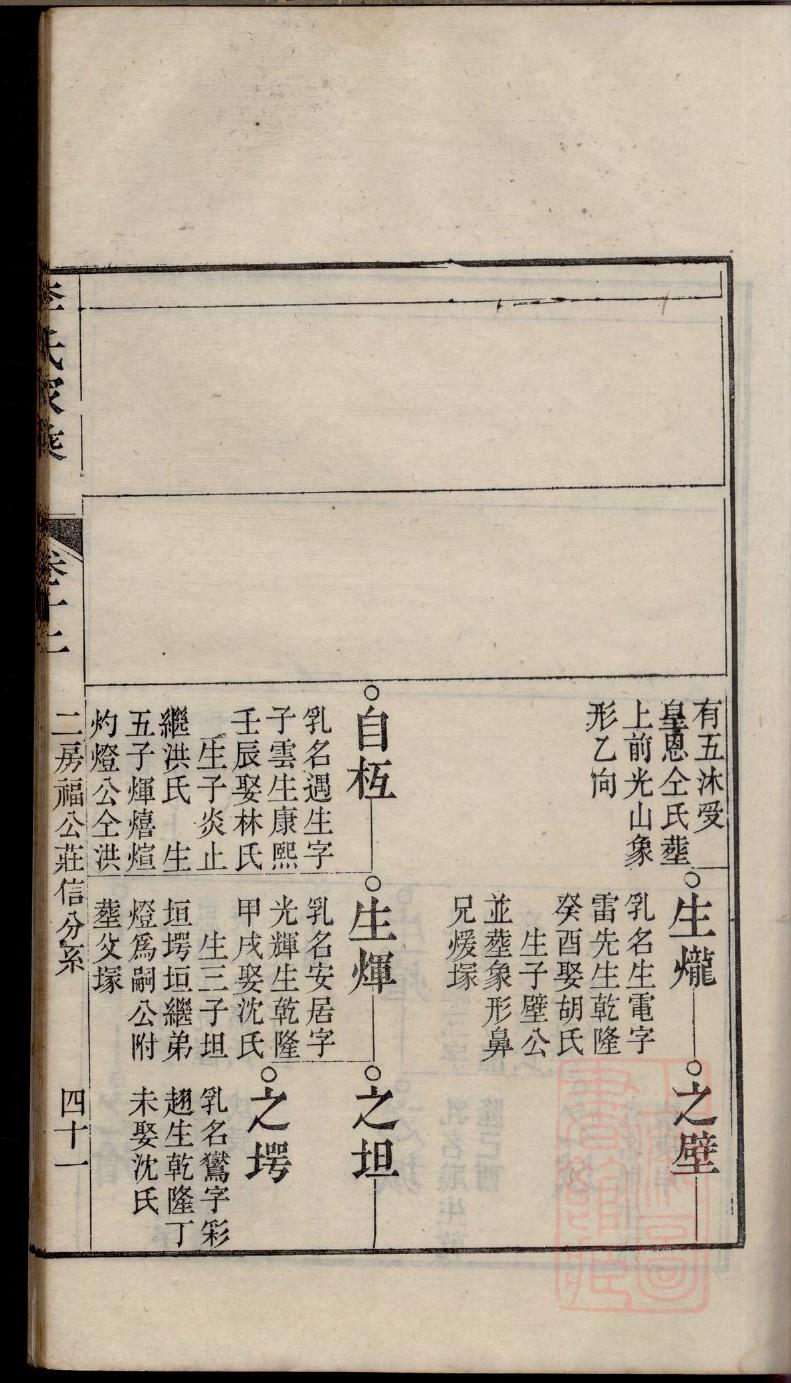 有五沐受
皇恩仝氏葬
上前光山象
形乙向
生爖
乳名生電字
雷先生乾隆
癸酉娶胡氏
生子壁公
並葬象形鼻
兄煖塚
之壁
自枑
乳名遇生字
子雲生康熙
壬辰娶林氏
生子炎止
繼洪氏　生
五子煇熺煊
灼燈公仝洪
生煇
乳名安居字
光輝生乾隆
甲戌娶沈氏
生三子坦
垣堮垣繼弟
燈為嗣公附
葬父塚
之坦
之堮
乳名鸞字彩
趐生乾隆丁
未娶沈氏
李氏家乘
卷十二
二房福公莊信分系
四十一